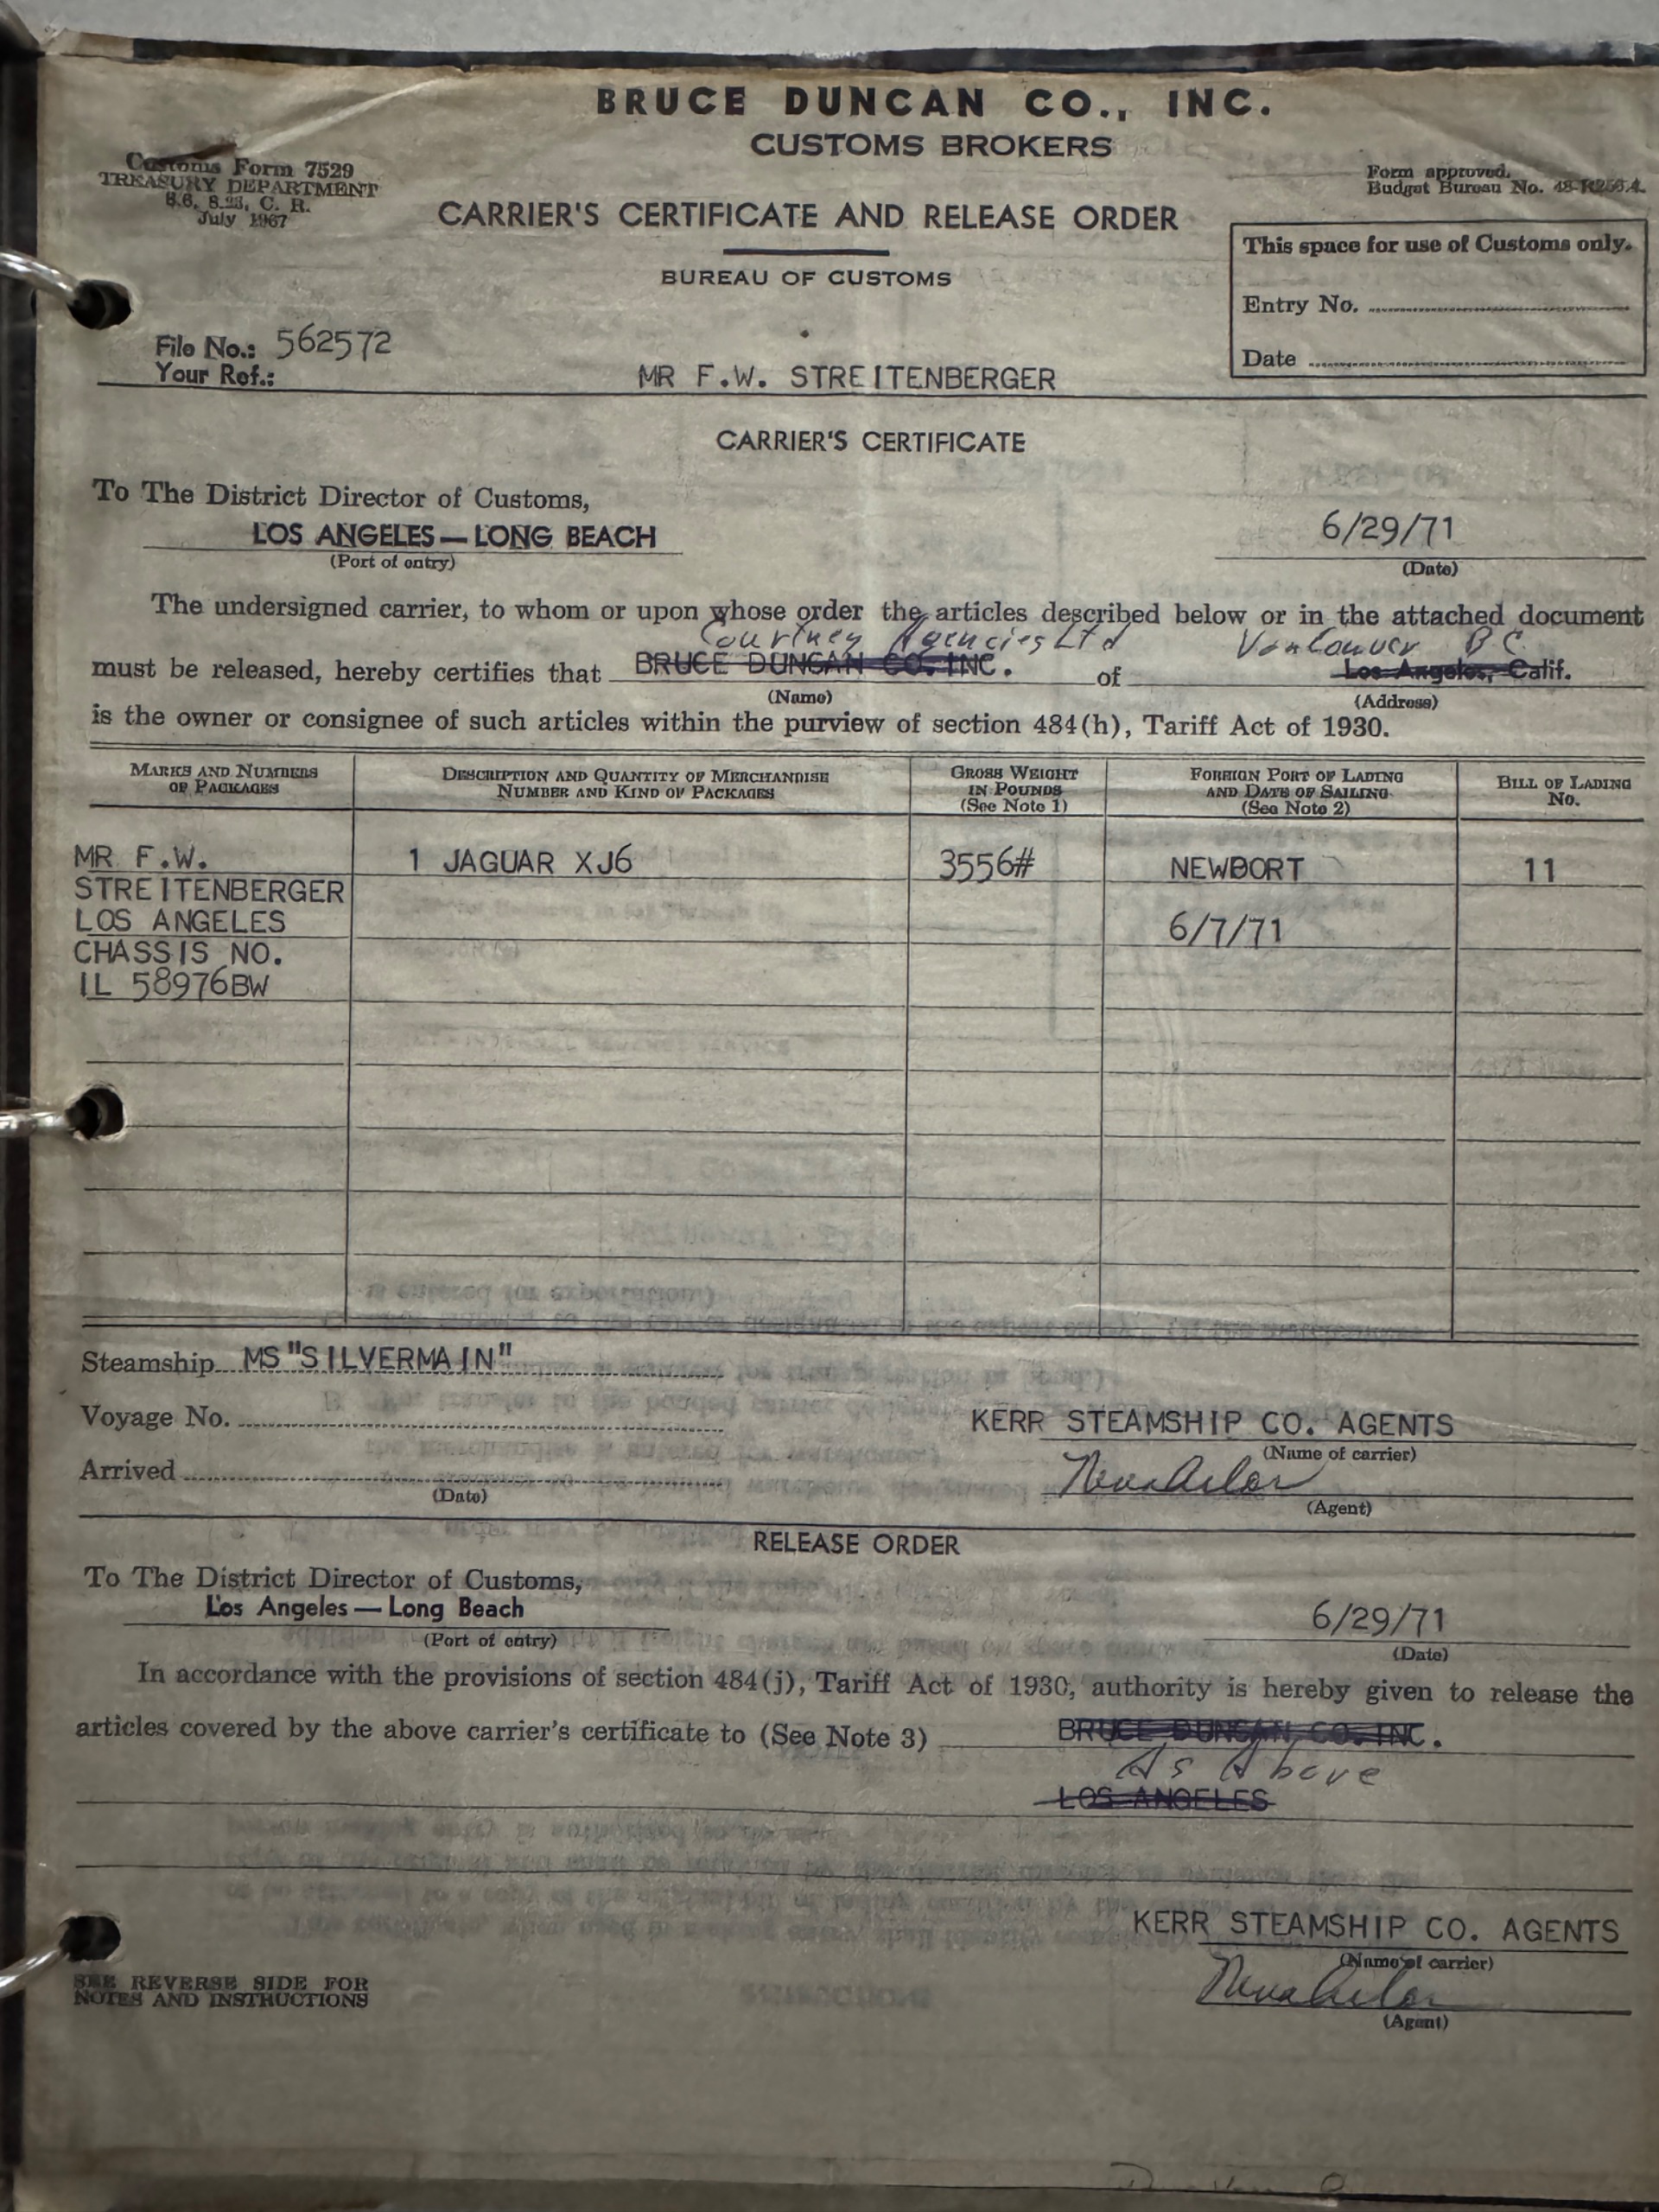 BRUCE DUNCAN CO., INC.
CUSTOMS BROKERS
Customs Form 7529
TREASURY DEPARTMENT
8.6, 8.23, C. R.
July 1967
Form approved.
Budget Bureau No. 48-R256.4.
CARRIER'S CERTIFICATE AND RELEASE ORDER
BUREAU OF CUSTOMS
This space for use of Customs only.
Entry No.
Date
File No.: 562572
Your Ref.:
MR F.W. STREITENBERGER
CARRIER'S CERTIFICATE
To The District Director of Customs,
LOS ANGELES — LONG BEACH
(Port of entry)
6/29/71
(Date)
The undersigned carrier, to whom or upon whose order the articles described below or in the attached document
Courtney Agencies Ltd Vancouver B C.
must be released, hereby certifies that BRUCE DUNCAN CO. INC. of Los Angeles, Calif.
(Name) (Address)
is the owner or consignee of such articles within the purview of section 484(h), Tariff Act of 1930.
MARKS AND NUMBERS
OF PACKAGES
DESCRIPTION AND QUANTITY OF MERCHANDISE
NUMBER AND KIND OF PACKAGES
GROSS WEIGHT
IN POUNDS
(See Note 1)
FOREIGN PORT OF LADING
AND DATE OF SAILING
(See Note 2)
BILL OF LADING
No.
MR F.W.
STREITENBERGER
LOS ANGELES
CHASSIS NO.
IL 58976BW
1 JAGUAR XJ6
3556#
NEWPORT
6/7/71
11
Steamship MS "SILVERMAIN"
Voyage No.
Arrived
(Date)
KERR STEAMSHIP CO. AGENTS
(Name of carrier)
(Agent)
RELEASE ORDER
To The District Director of Customs,
Los Angeles — Long Beach
(Port of entry)
6/29/71
(Date)
In accordance with the provisions of section 484(j), Tariff Act of 1930, authority is hereby given to release the
articles covered by the above carrier's certificate to (See Note 3) BRUCE DUNCAN CO. INC.
As Above
LOS ANGELES
KERR STEAMSHIP CO. AGENTS
(Name of carrier)
(Agent)
SEE REVERSE SIDE FOR
NOTES AND INSTRUCTIONS